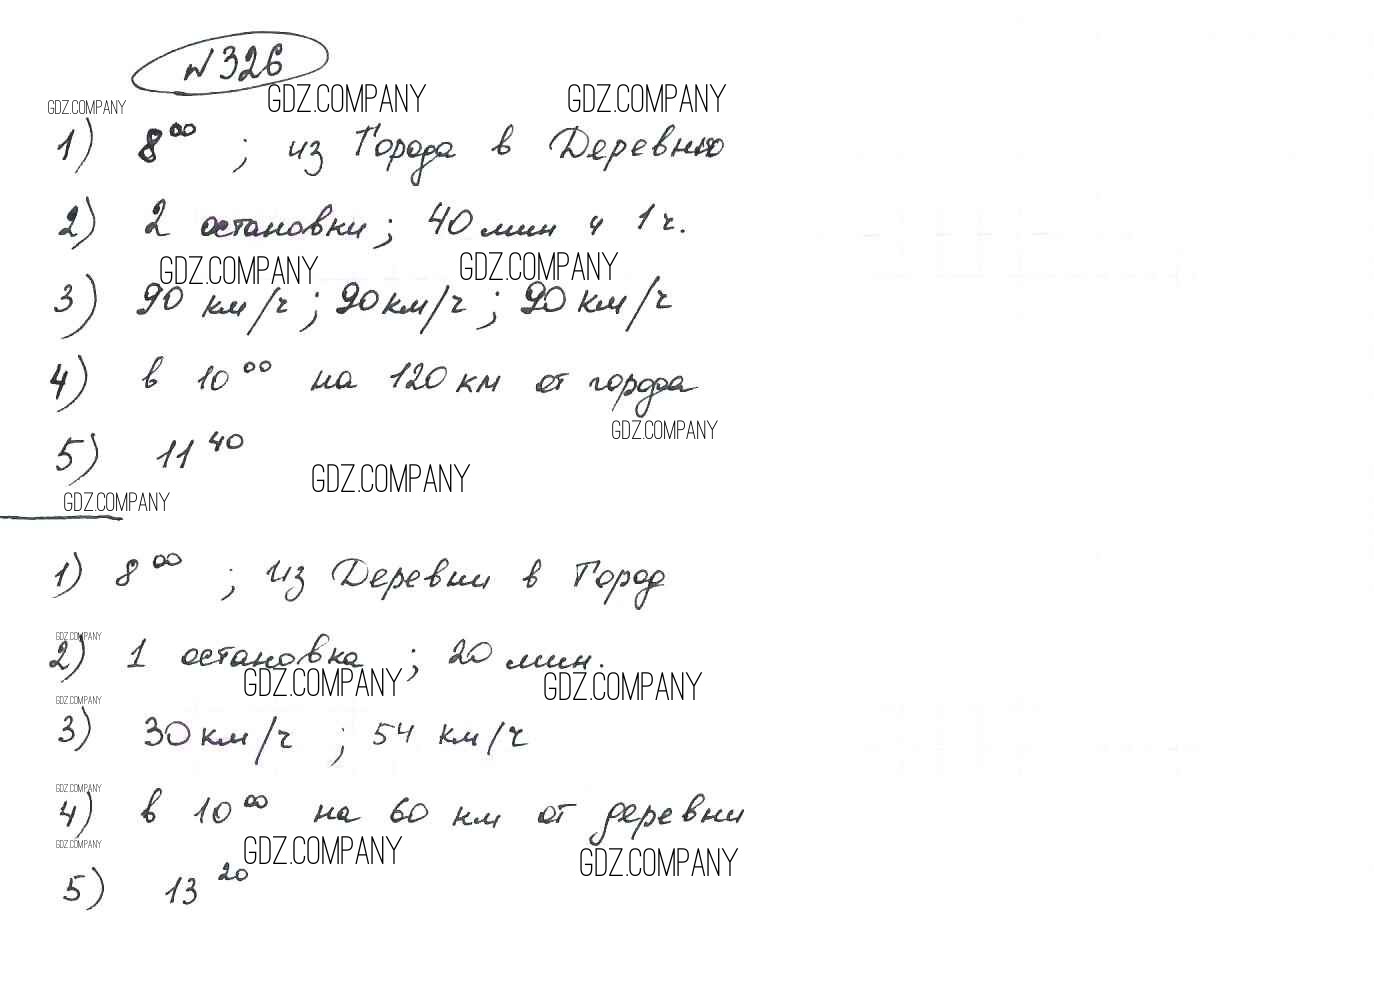 № 326
GDZ.COMPANY GDZ.COMPANY GDZ.COMPANY
1) 8⁰⁰ ; из Города в Деревню
2) 2 остановки; 40 мин и 1 ч.
GDZ.COMPANY GDZ.COMPANY
3) 90 км/ч ; 90 км/ч ; 90 км/ч
4) в 10⁰⁰ на 120 км от города
GDZ.COMPANY
5) 11⁴⁰
GDZ.COMPANY
GDZ.COMPANY
1) 8⁰⁰ ; из Деревни в Город
GDZ.COMPANY
2) 1 остановка ; 20 мин.
GDZ.COMPANY GDZ.COMPANY
GDZ.COMPANY
3) 30 км/ч ; 54 км/ч
GDZ.COMPANY
4) в 10⁰⁰ на 60 км от деревни
GDZ.COMPANY GDZ.COMPANY GDZ.COMPANY
5) 13²⁰